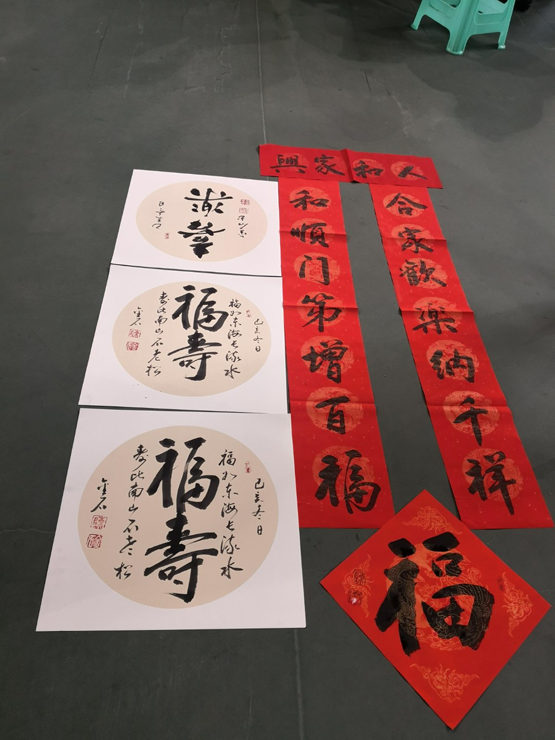 人和家興
合家歡樂納千祥
和順門第增百福
福
己亥冬日
福如东海长流水
福壽
寿比南山不老松
金石
己亥冬日
福如东海长流水
福壽
寿比南山不老松
金石